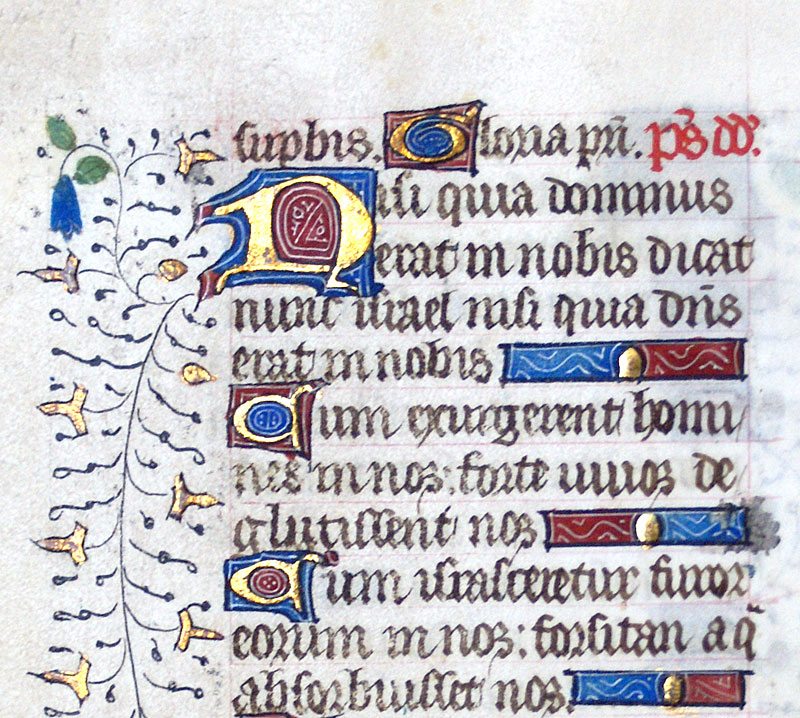 supbis. Gloria pri. ps dd.
Nisi quia dominus
erat in nobis dicat
nunc israel nisi quia dns
erat in nobis
Cum exurgerent homi
nes in nos: forte uiuos de
glutissent nos
Cum israsceretur furor
eorum in nos: forsitan aq̃
absorbuisset nos.